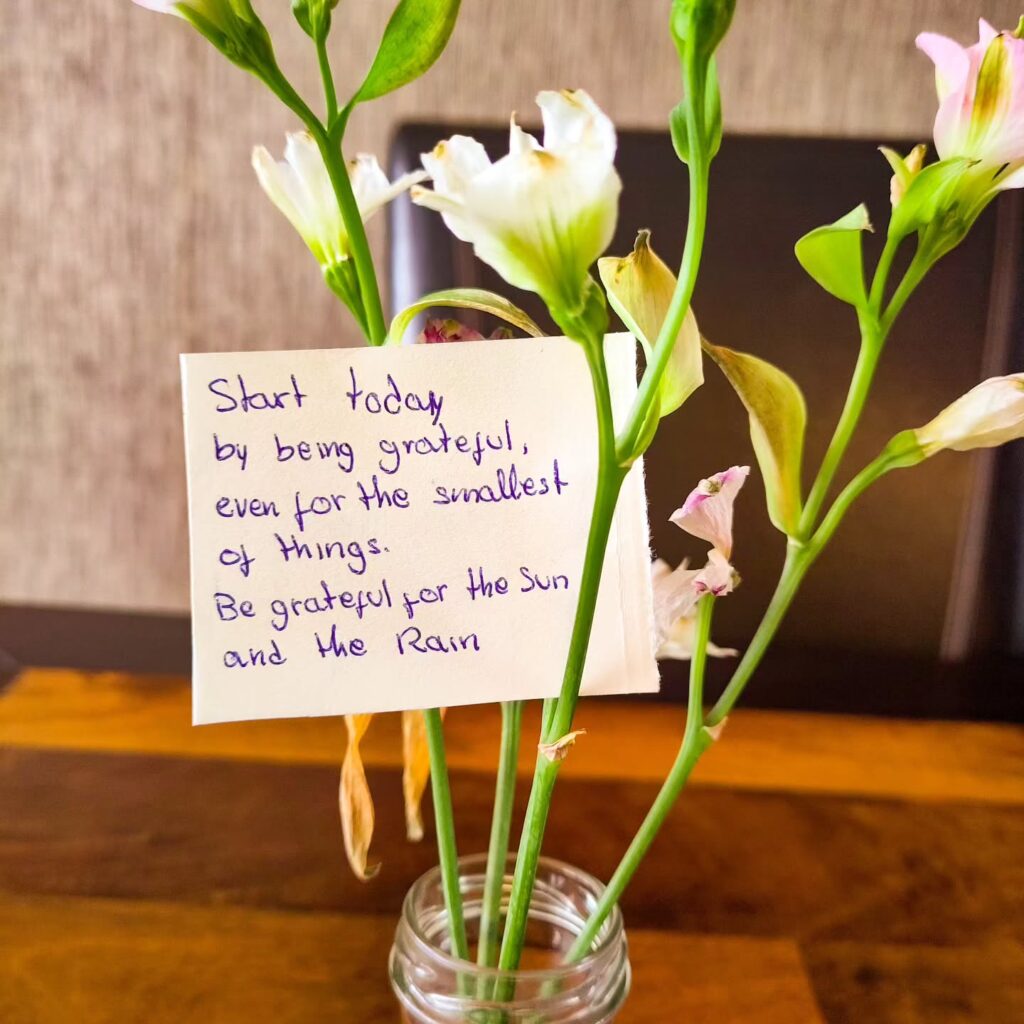 Start today
by being grateful,
even for the smallest
of things.
Be grateful for the Sun
and the Rain